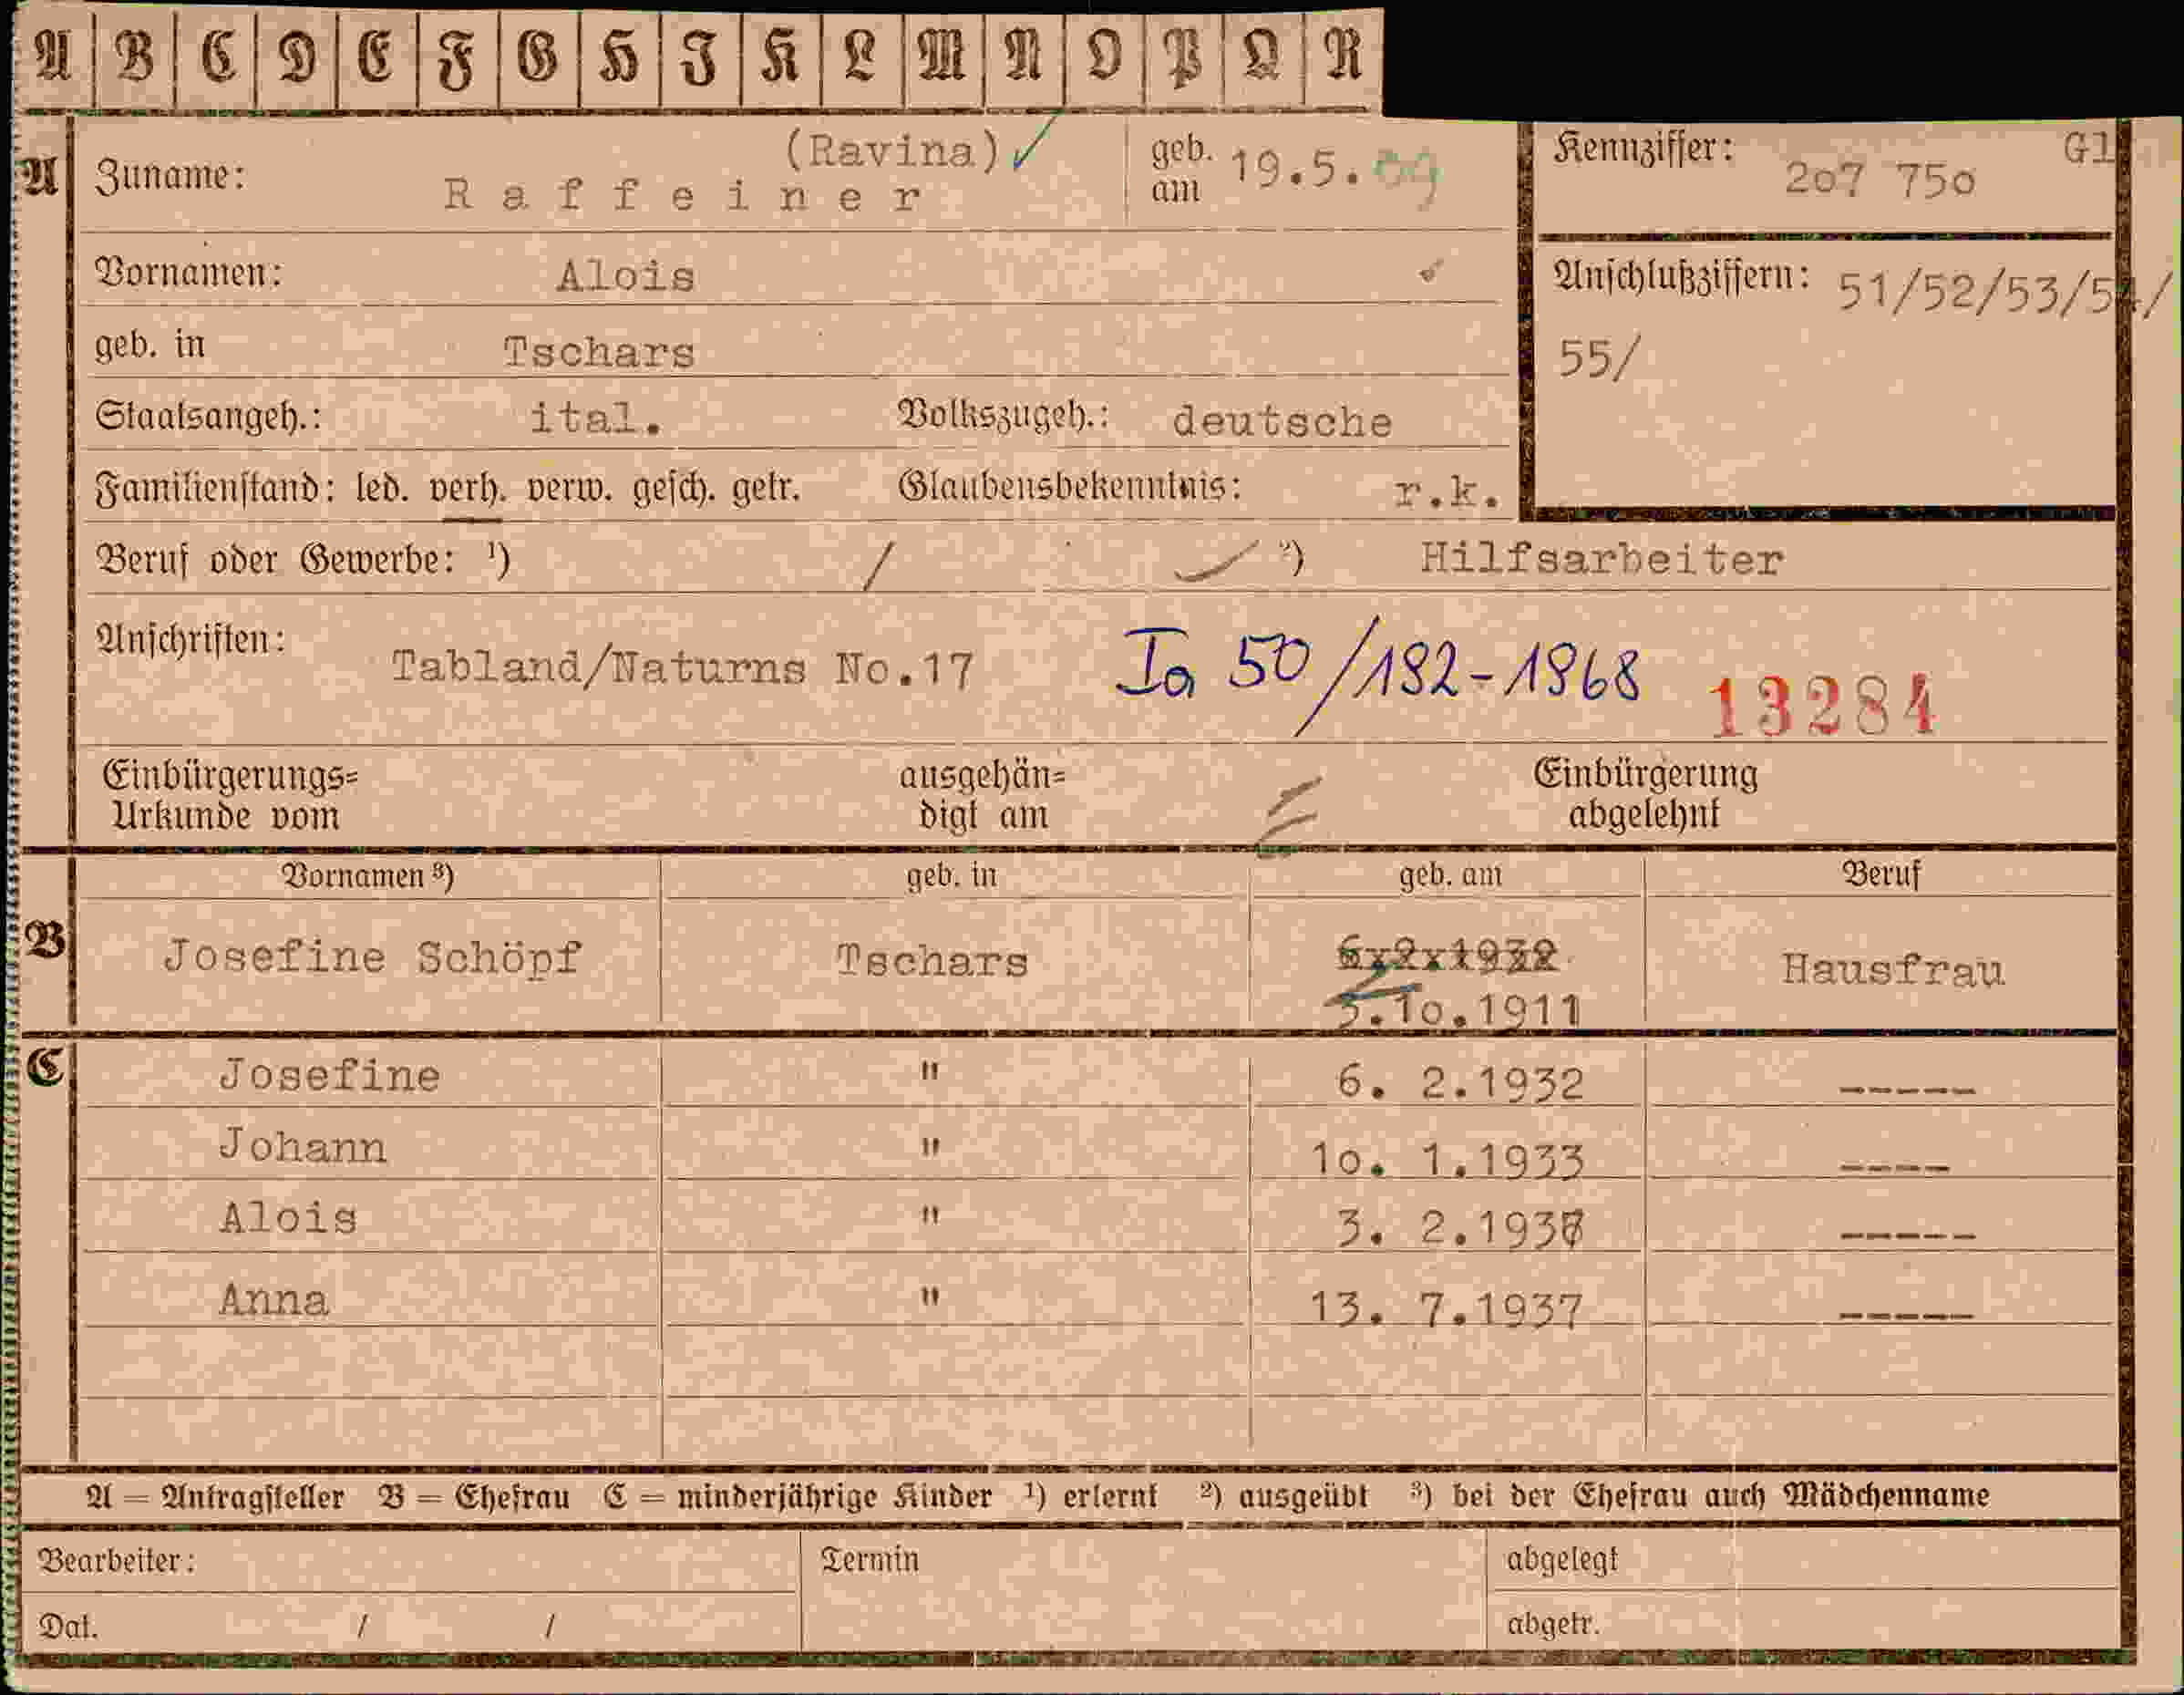 A B C D E F G H I K L M N O P Q R
A Zuname: (Ravina) ✓ geb. am 19.5.09 Kennziffer: 207 750 Gl
Raffeiner
Vornamen: Alois Anschlußziffern: 51/52/53/54/
geb. in Tschars 55/
Staatsangeh.: ital. Volkszugeh.: deutsche
Familienstand: led. verh. verw. gesch. getr. Glaubensbekenntnis: r.k.
Beruf oder Gewerbe: ¹) / ²) Hilfsarbeiter
Anschriften: Tabland/Naturns No.17 Ia 50/192-1968 13284
Einbürgerungs= ausgehän= Einbürgerung
Urkunde vom digt am abgelehnt
Vornamen ³) geb. in geb. am Beruf
B Josefine Schöpf Tschars 6x2x1932 Hausfrau
3.10.1911
C Josefine " 6. 2.1932 -----
Johann " 10. 1.1933 ----
Alois " 3. 2.193 -----
Anna " 13. 7.1937 -----
A = Antragsteller B = Ehefrau C = minderjährige Kinder ¹) erlernt ²) ausgeübt ³) bei der Ehefrau auch Mädchenname
Bearbeiter: Termin abgelegt
Dat. / / abgetr.